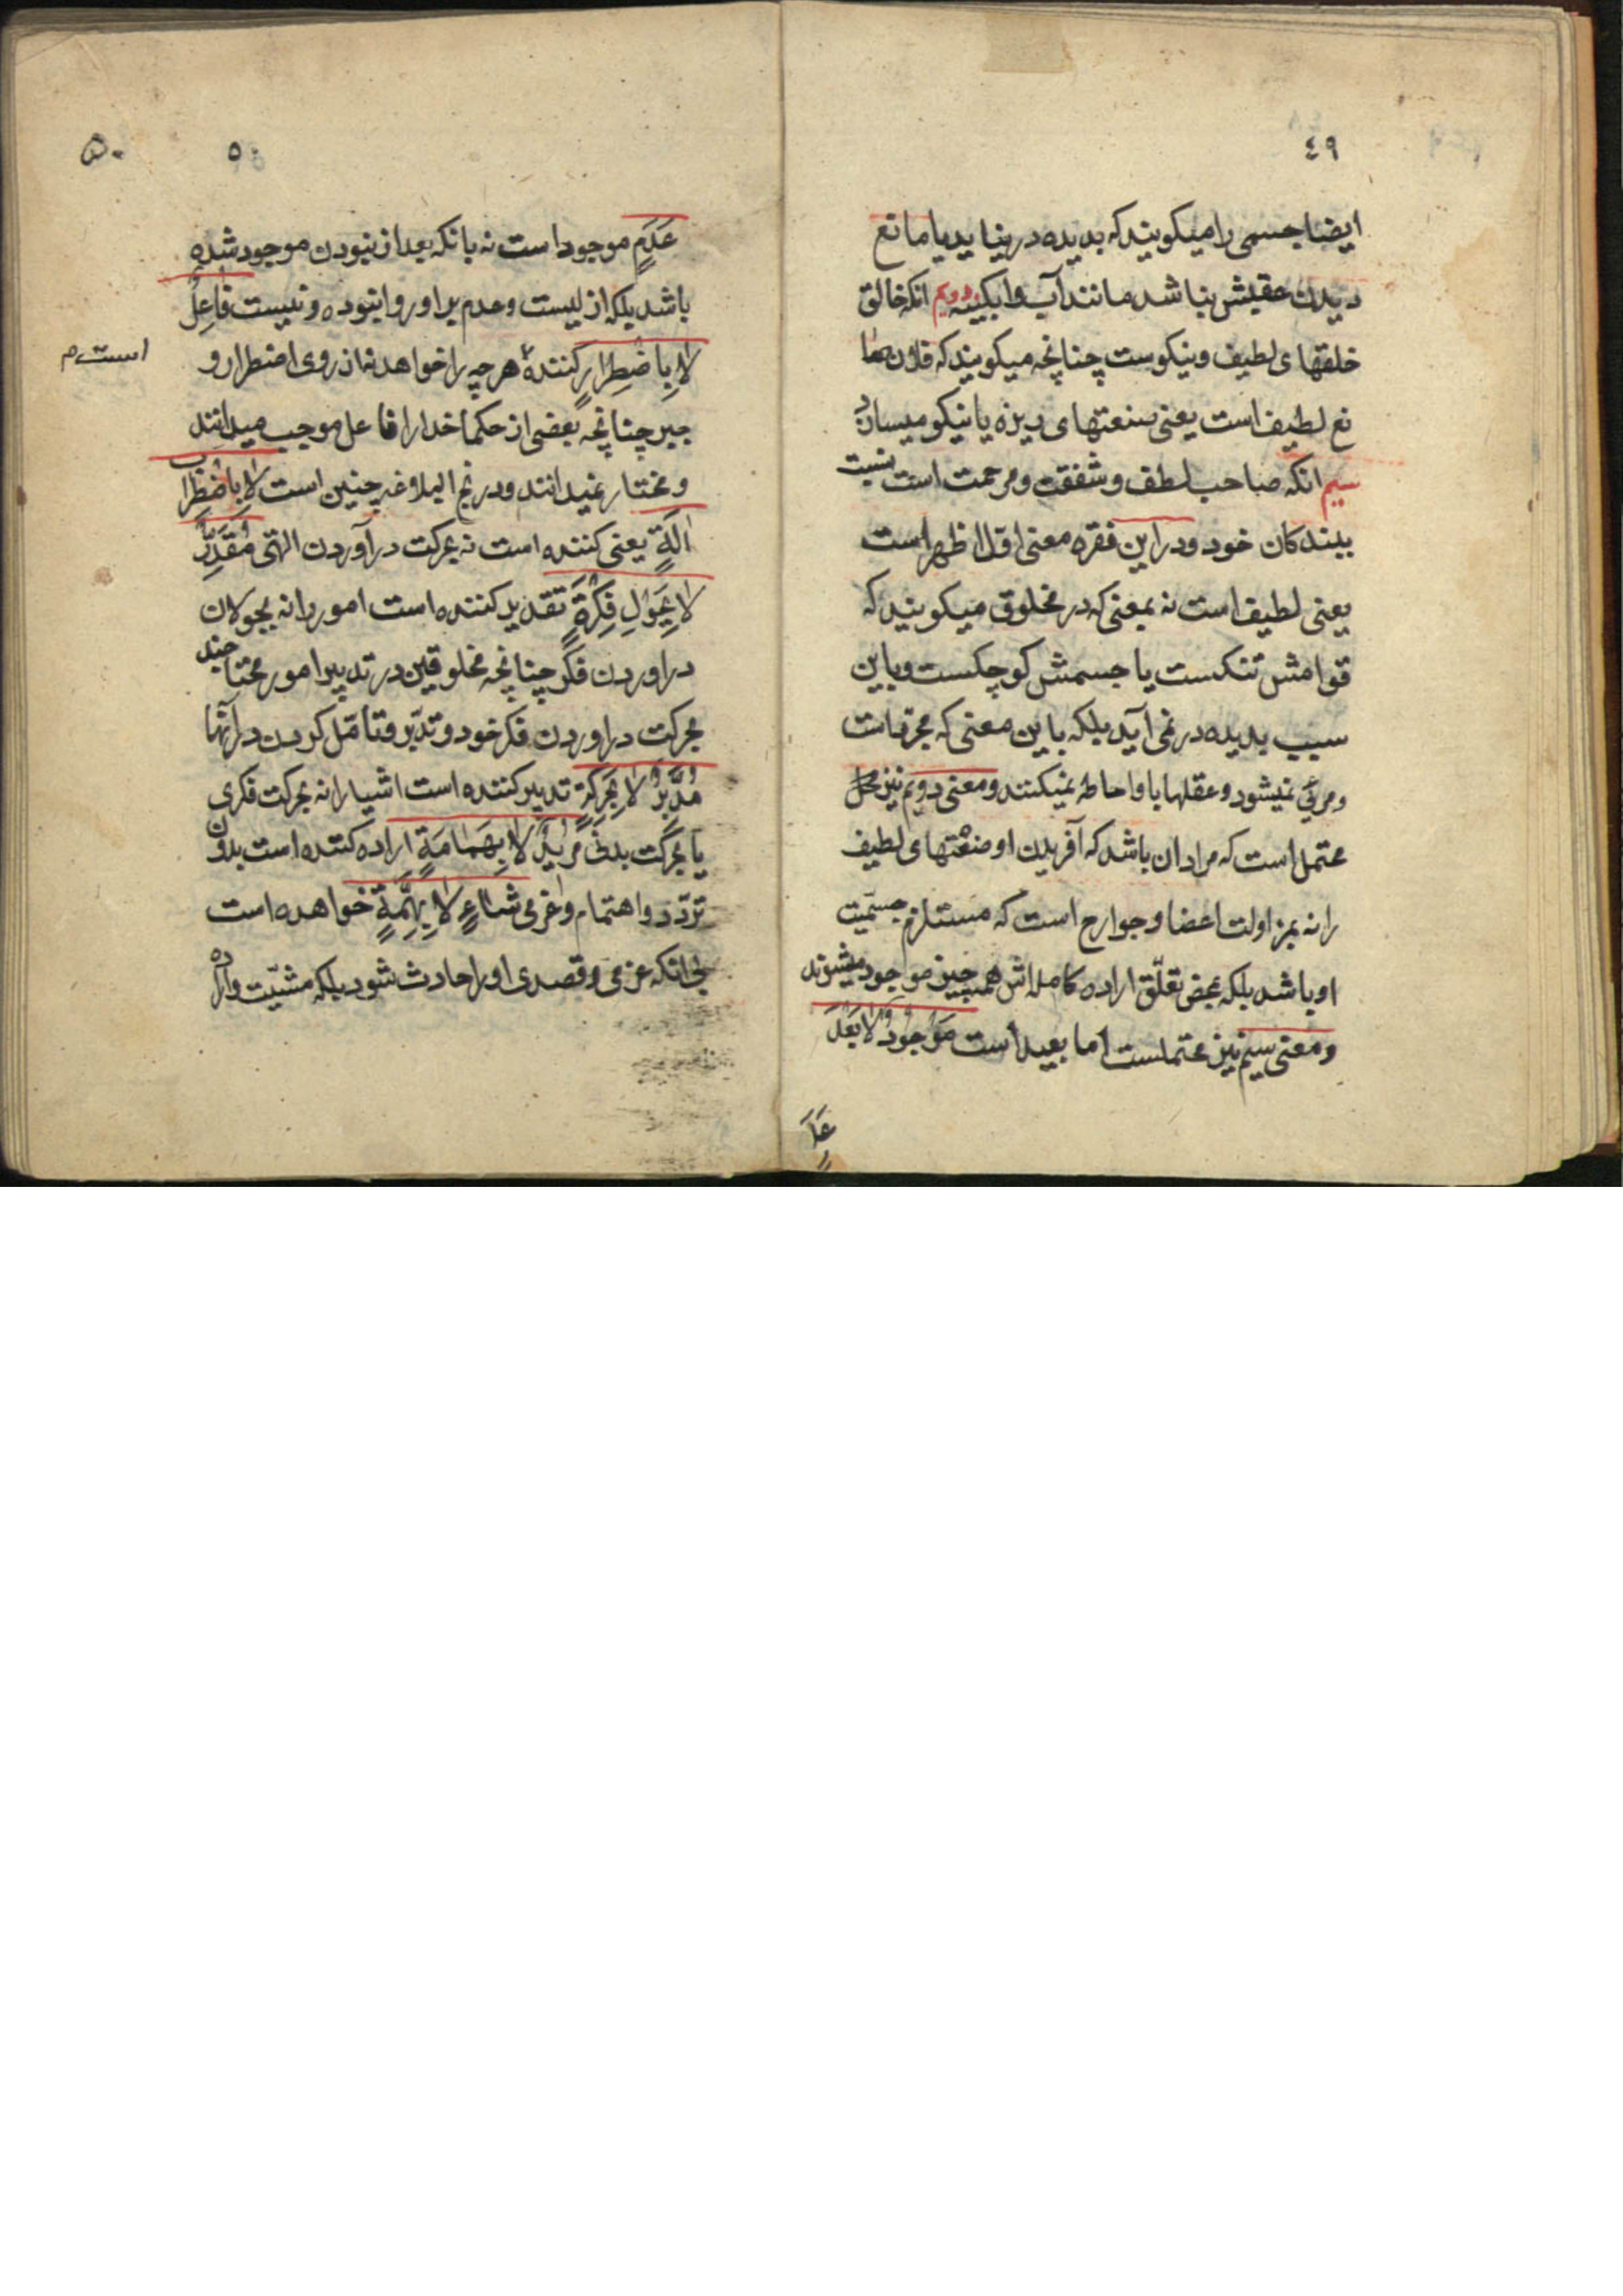 ٤٩
ایضا جسمی را میکویند که بدیده در نیاید یا مانع
دیدن عقبش نباشد مانند آب و ابکینه دویم انکه خالق
خلقهای لطیف و نیکوست چنانچه میکویند که فلان صا
نع لطیف است یعنی صنعتهای ریزه یا نیکو میسازد
سیم انکه صاحب لطف و شفقت و مرحمت است نسبت
ببندکان خود و در این فقره معنی اول اظهر است
یعنی لطیف است نه بمعنی که در مخلوق میکویند که
قوامش تنکست یا جسمش کوچکست و باین
سبب بدیده در نمی آید بلکه باین معنی که مجرد است
و مرئی نمیشود و عقلها باو احاطه نمیکنند و معنی دویم نیز
محتمل است که مراد ان باشد که آفریدن او صنعتهای لطیف
را نه بمزاولت اعضا و جوارح است که مستلزم جسمیت
او باشد بلکه بمحض تعلّق اراده کامله اش همه چیز موجود میشوند
و معنی سیم نیز محتملست اما بعید است مَوْجُودٌ لا بَعْدَ
عَدَ
۵۰
۵۰
عَدَمٍ موجود است نه بانکه بعد از نبودن موجود شده
باشد بلکه ازلیست و عدم بر او روا نبوده و نیست فاعِلٌ
لا بِاضْطِرارٍ کننده هر چه را خواهد نه از روی اضطرار و
است م
جبر چنانچه بعضی از حکما خدا را فاعل موجب میدانند
و مختار نمیدانند و در نهج البلاغه چنین است لا باضْطِرابِ
الَةٍ یعنی کننده است نه بحرکت درآوردن التی مُقَدِّرٌ
لا بِجَوْلِ فِکْرَةٍ تقدیر کننده است امور را نه بجولان
دراوردن فکر چنانچه مخلوقین در تدبیر امور محتاجند
بحرکت دراوردن فکر خود و تدبّر و تامّل کردن در آنها
مُدَبِّرٌ لا بِحَرَکَةٍ تدبیر کننده است اشیا را نه بحرکت فکری
یا بحرکت بدنی مُریدٌ لا بِهَمامَةٍ اراده کننده است بدون
تردّد و اهتمام و عزمی شاءٍ لا بِهِمَّةٍ خواهنده است
بی انکه عزمی و قصدی او را حادث شود بلکه مشیّت و اراده